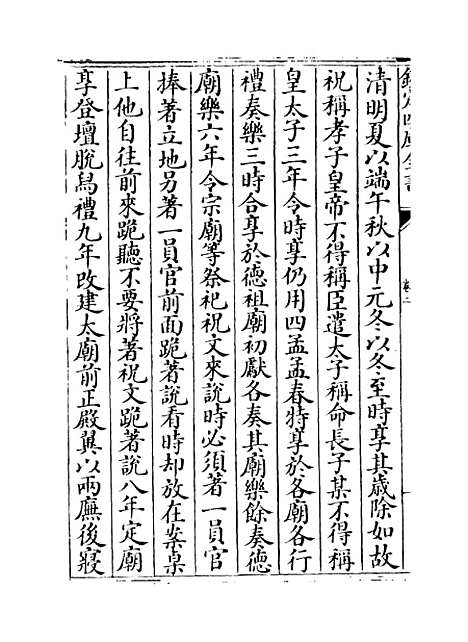 欽定四庫全書
卷二
清明夏以端午秋以中元冬以冬至時享其歲除如故
祝稱孝子皇帝不得稱臣遣太子稱命長子某不得稱
皇太子三年令時享仍用四孟孟春特享於各廟各行
禮奏樂三時合享於德祖廟初獻各奏其廟樂餘奏德
廟樂六年令宗廟等祭祀祝文來說時必須著一員官
捧著立地另著一員官前面跪著說看時却放在案桌
上他自往前來跪聽不要將著祝文跪著說八年定廟
享登壇脫舄禮九年改建太廟前正殿翼以兩廡後寢